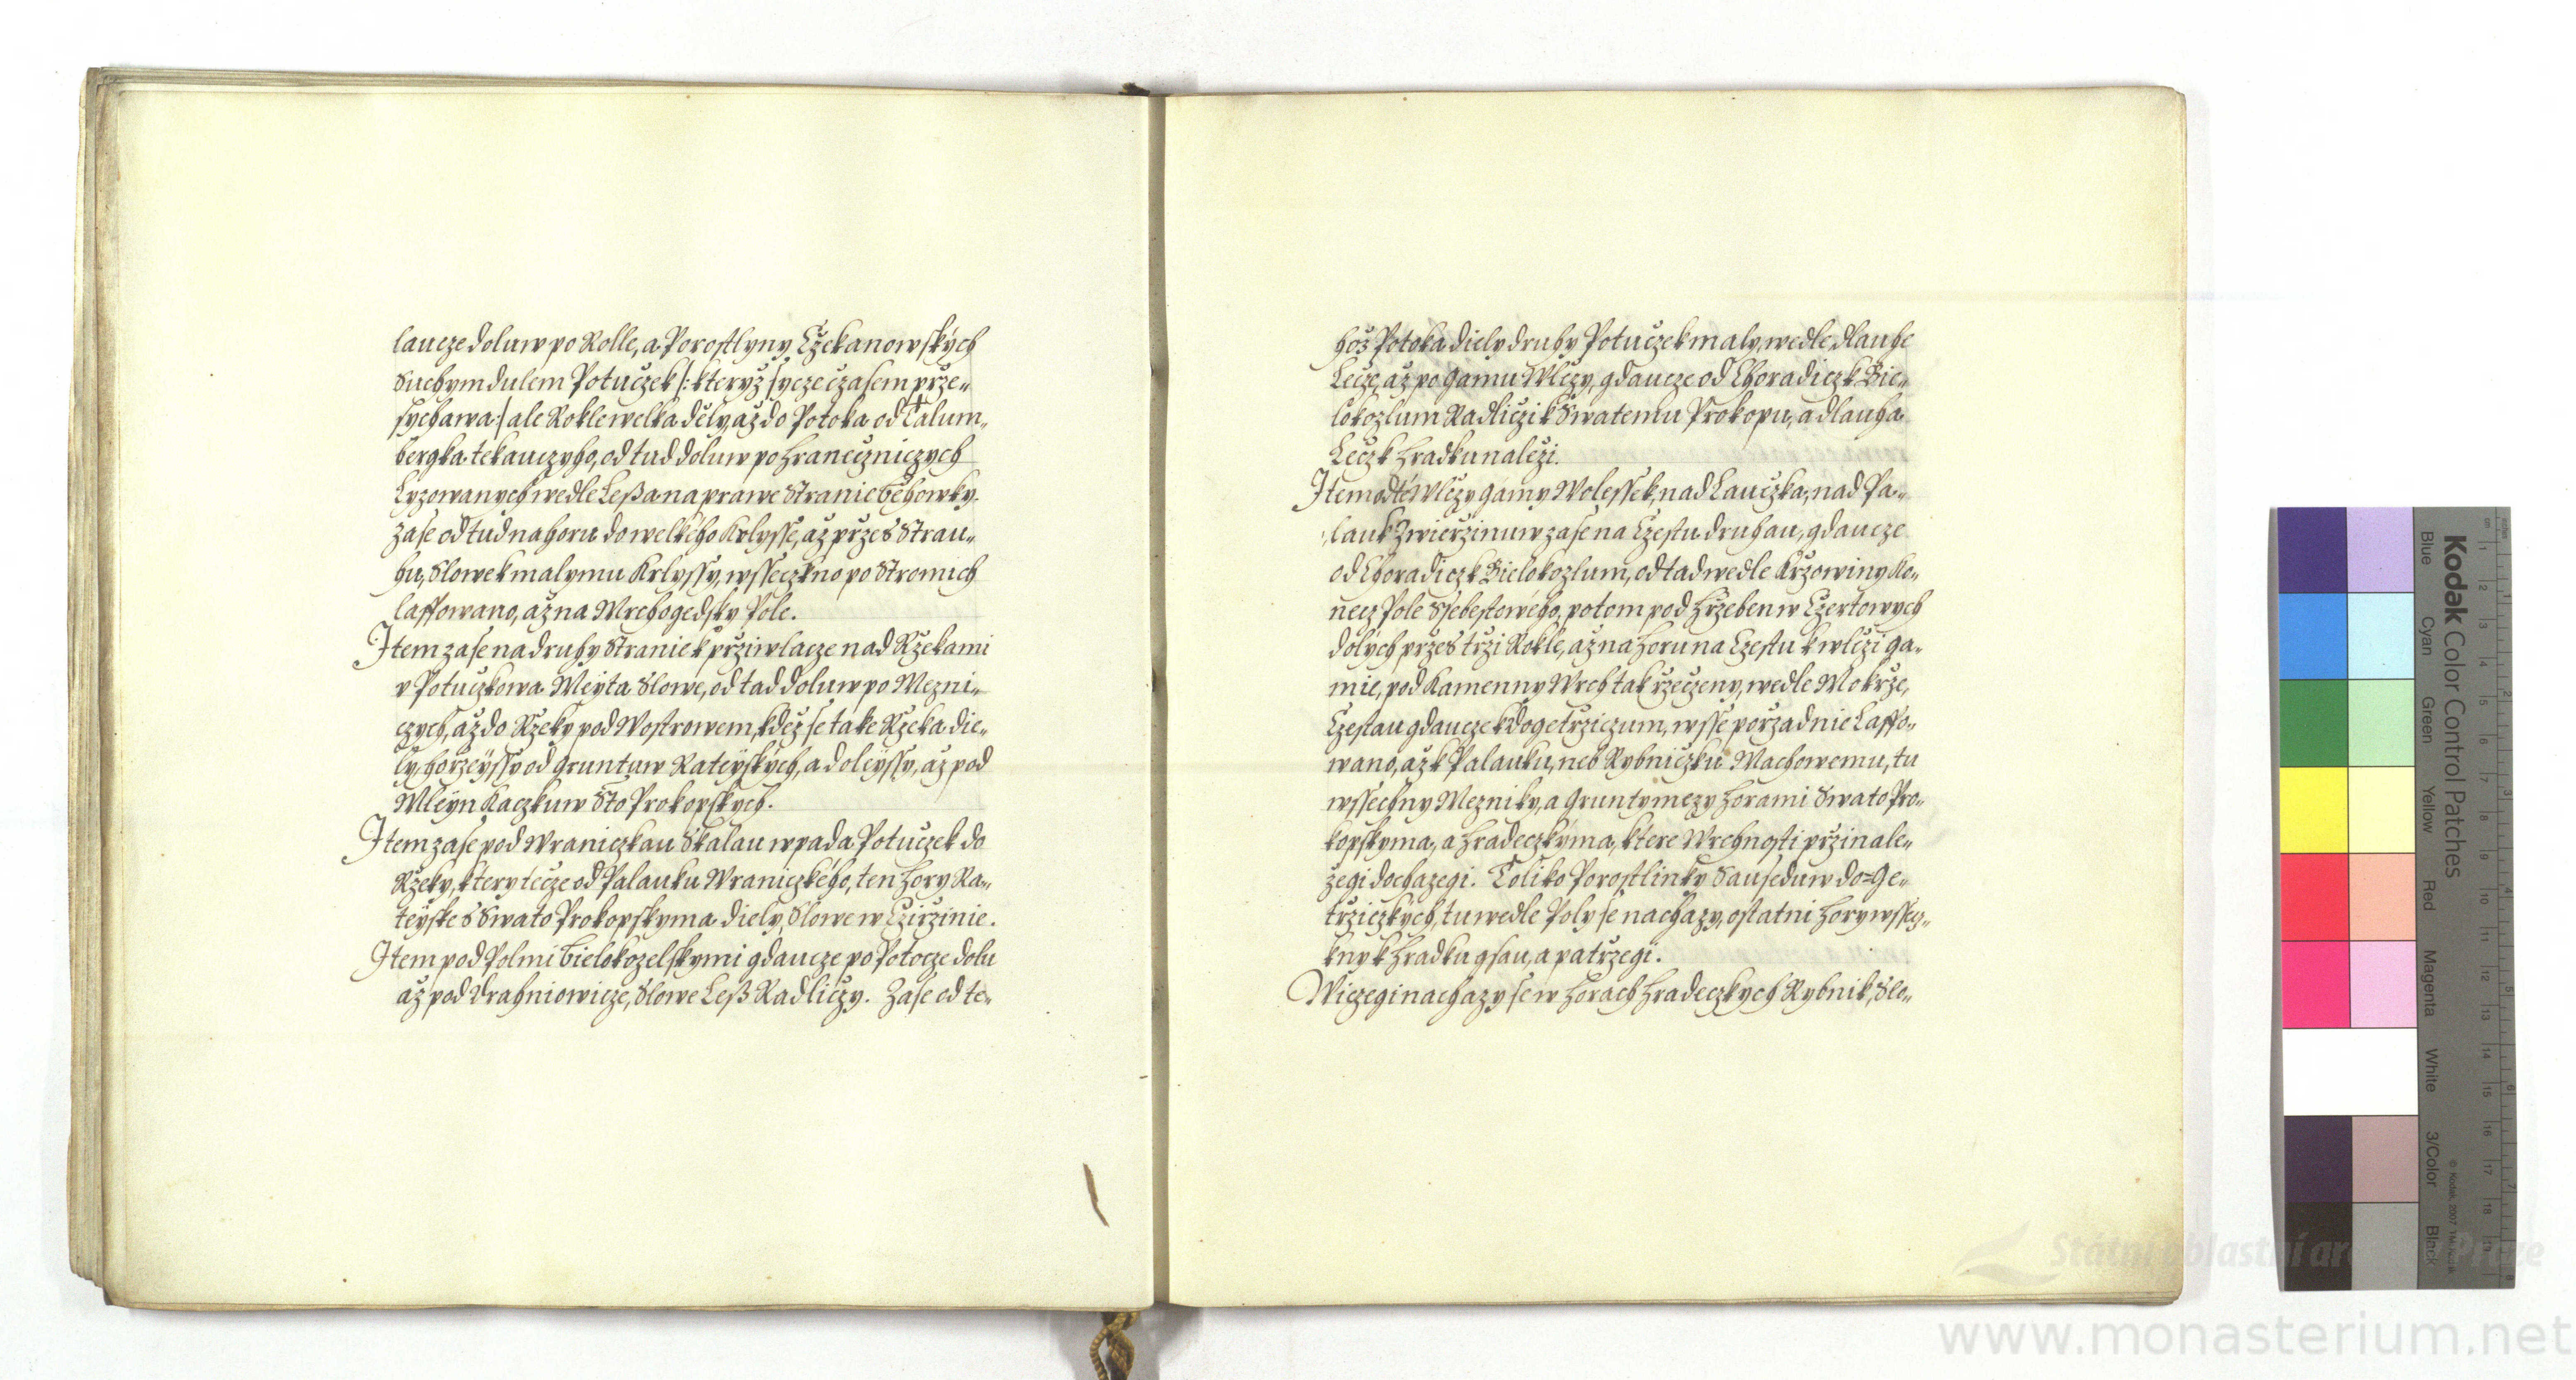 laucze doluw po Rolle, a Porostlyny Czekanowských
Suchym dulem Potuczek /: kteryž sycze czasem prze„
sychawa :/ ale Rokle welka dely, až do Potoka od Talum„
bergka tekauczyho, od tud doluw po Hranecznicych
Lyzowanych wedle Leßa na prawe Stranie Běhowky.
Zase od tud nahoru do welkého Krlysse, až przes Strau„
hu, Slowe k malymu Krlyssy, wsseczkno po Stromich
lassowano, až na Wrchogedsky Pole.
Item zase na druhy Stranie k prziwlacze nad Rzekami
v Potuczkowa Meyta Slowe, od tad doluw po Mezni„
czych, až do Rzeky pod Wostrowem, kdež se take Rzeka die„
ly, horzeyssy od Gruntuw Rateyských, a doleyssy, až pod
Mleyn Kaczkuw Sto Prokopskych.
Item zase pod Wraniczkau Skalau wpada Potuczek do
Rzeky, ktery tecze od Palauku Wraniczkého, ten Hory Ra„
teyske S Swato Prokopskyma diely, Slowe w Czirzinie.
Item pod Polmi Bielokozelskymi gdaucze po Potocze dolu
až pod Drahniowicze, Slowe Leß Radliczy. Zase od te„
hož Potoka diely druhy Potuczek maly, wedle dlauhe
Lecze, až po Gamu Wlczy, gdaucze od Choradiczk Bie„
lokozlum Radliczi k Swatemu Prokopu, a dlauha
Lecz k Hradku naleži.
Item od té Wlczy Gamy Wolessek, nad Lauczka, nad Pa„
lauk Zwierzinuw zase na Czestu druhau, gdaucze
od Choradiczk Bielokozlum, od tad wedle Krzowiny Ko„
necz Pole Ssebestowého, potom pod Hrzeben w Czertowych
dolých przes trzi Rokle, až na Horu na Czestu k wlczi ga„
mie, pod Kamenny Wrch tak rzeczeny, wedle Mokrze,
Czestau gdaucze k Dogetrziczum, wsse porzadnie Lasso„
wano, až k Palauku, neb Rybniczku Machowemu, tu
wssechny Mezniky, a Grunty mezy Horami Swato Pro„
kopskyma, a Hradeczkýma, ktere Wrchnosti przinale„
žegi dochazegi. Toliko Porostlinky Sauseduw do=Ge„
trziczkych, tu wedle Poly se nachazy, ostatni Hory wssecz„
kny k Hradku gsau, a patrzegi.
Wiczegi nachazy se w Horach Hradeczkych Rybnik, Slo„
Kodak Color Control Patches
Blue
Cyan
Green
Yellow
Red
Magenta
White
3/Color
Black
© Kodak, 2007
www.monasterium.net